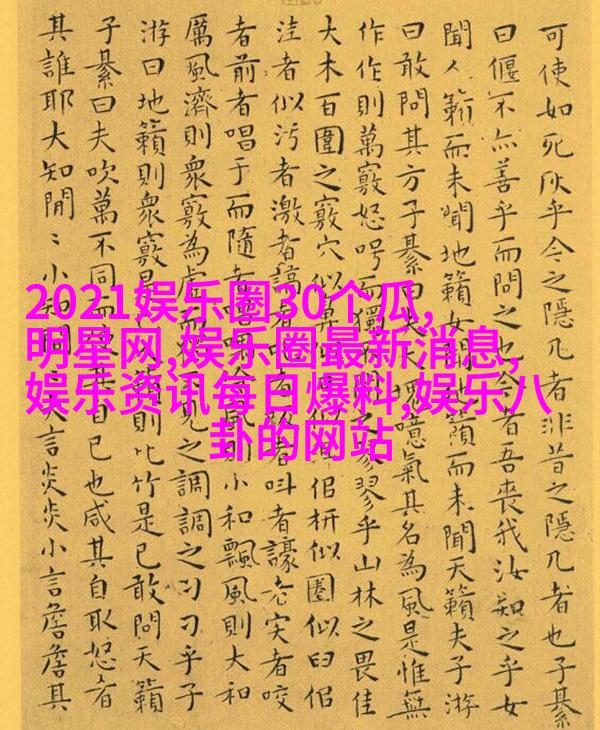 可使如死灰乎今之隱几者非昔之隱几者也子綦
曰偃不亦善乎而問之也今者吾喪我汝知之乎女
聞人籟而未聞地籟女聞地籟而未聞天籟夫子游
曰敢問其方子綦曰夫大塊噫氣其名為風是惟無
作作則萬竅怒呺而獨之翏乎山林之畏佳
大木百圍之竅穴似鼻似枅似圈似臼似
洼者似污者激者謞者叫者譹者宎者咬
者前者唱于而隨者風則小和飄風則大和
厲風濟則衆竅為虛而見之調調之刁刁乎子
游曰地籟則衆竅是籟則比竹是已敢問天籟
子綦曰夫吹萬不同而使其自已也咸其自取怒者
其誰耶大知閒〻小知大言炎炎小言詹詹其
2021娱乐圈30个瓜,
明星网,娱乐圈最新消息,
娱乐资讯每日爆料,娱乐八
卦的网站